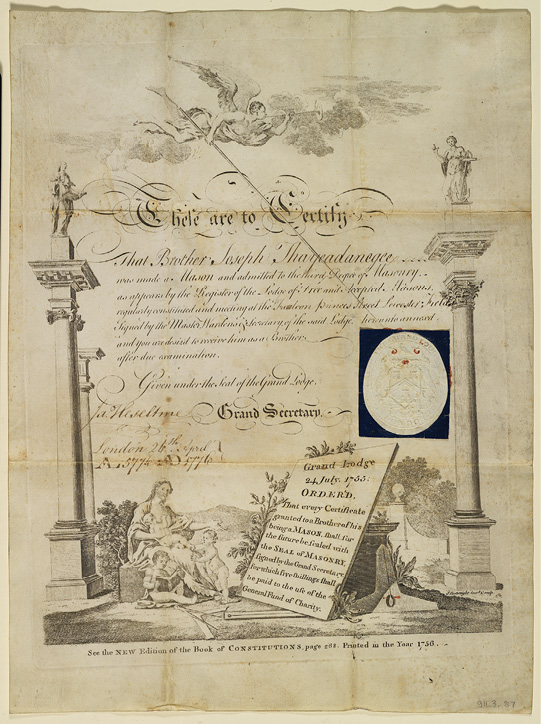 These are to Certify
That Brother Joseph Thayeadanegee
was made a Mason and admitted to the third Degree of Masonry
as appears by the Register of the Lodge of Free and Accepted Masons,
regularly constituted and meeting at the Falcon Princes Street Leicester Fields
Signed by the Master Wardens & Secretary of the said Lodge hereunto annexed
and you are desired to receive him as a Brother,
after due examination.
Given under the Seal of the Grand Lodge.
Jas Heseltine Grand Secretary
London 26th April
AL 5776 AD 1776
Grand Lodge
24 July. 1755.
ORDER'D,
That every Certificate
granted to a Brother of his
being a MASON, shall for
the future be sealed with
the SEAL of MASONRY,
signed by the Grand Secretary
for which five shillings shall
be paid to the use of the
General Fund of Charity.
See the NEW Edition of the Book of CONSTITUTIONS, page 268. Printed in the Year 1756.